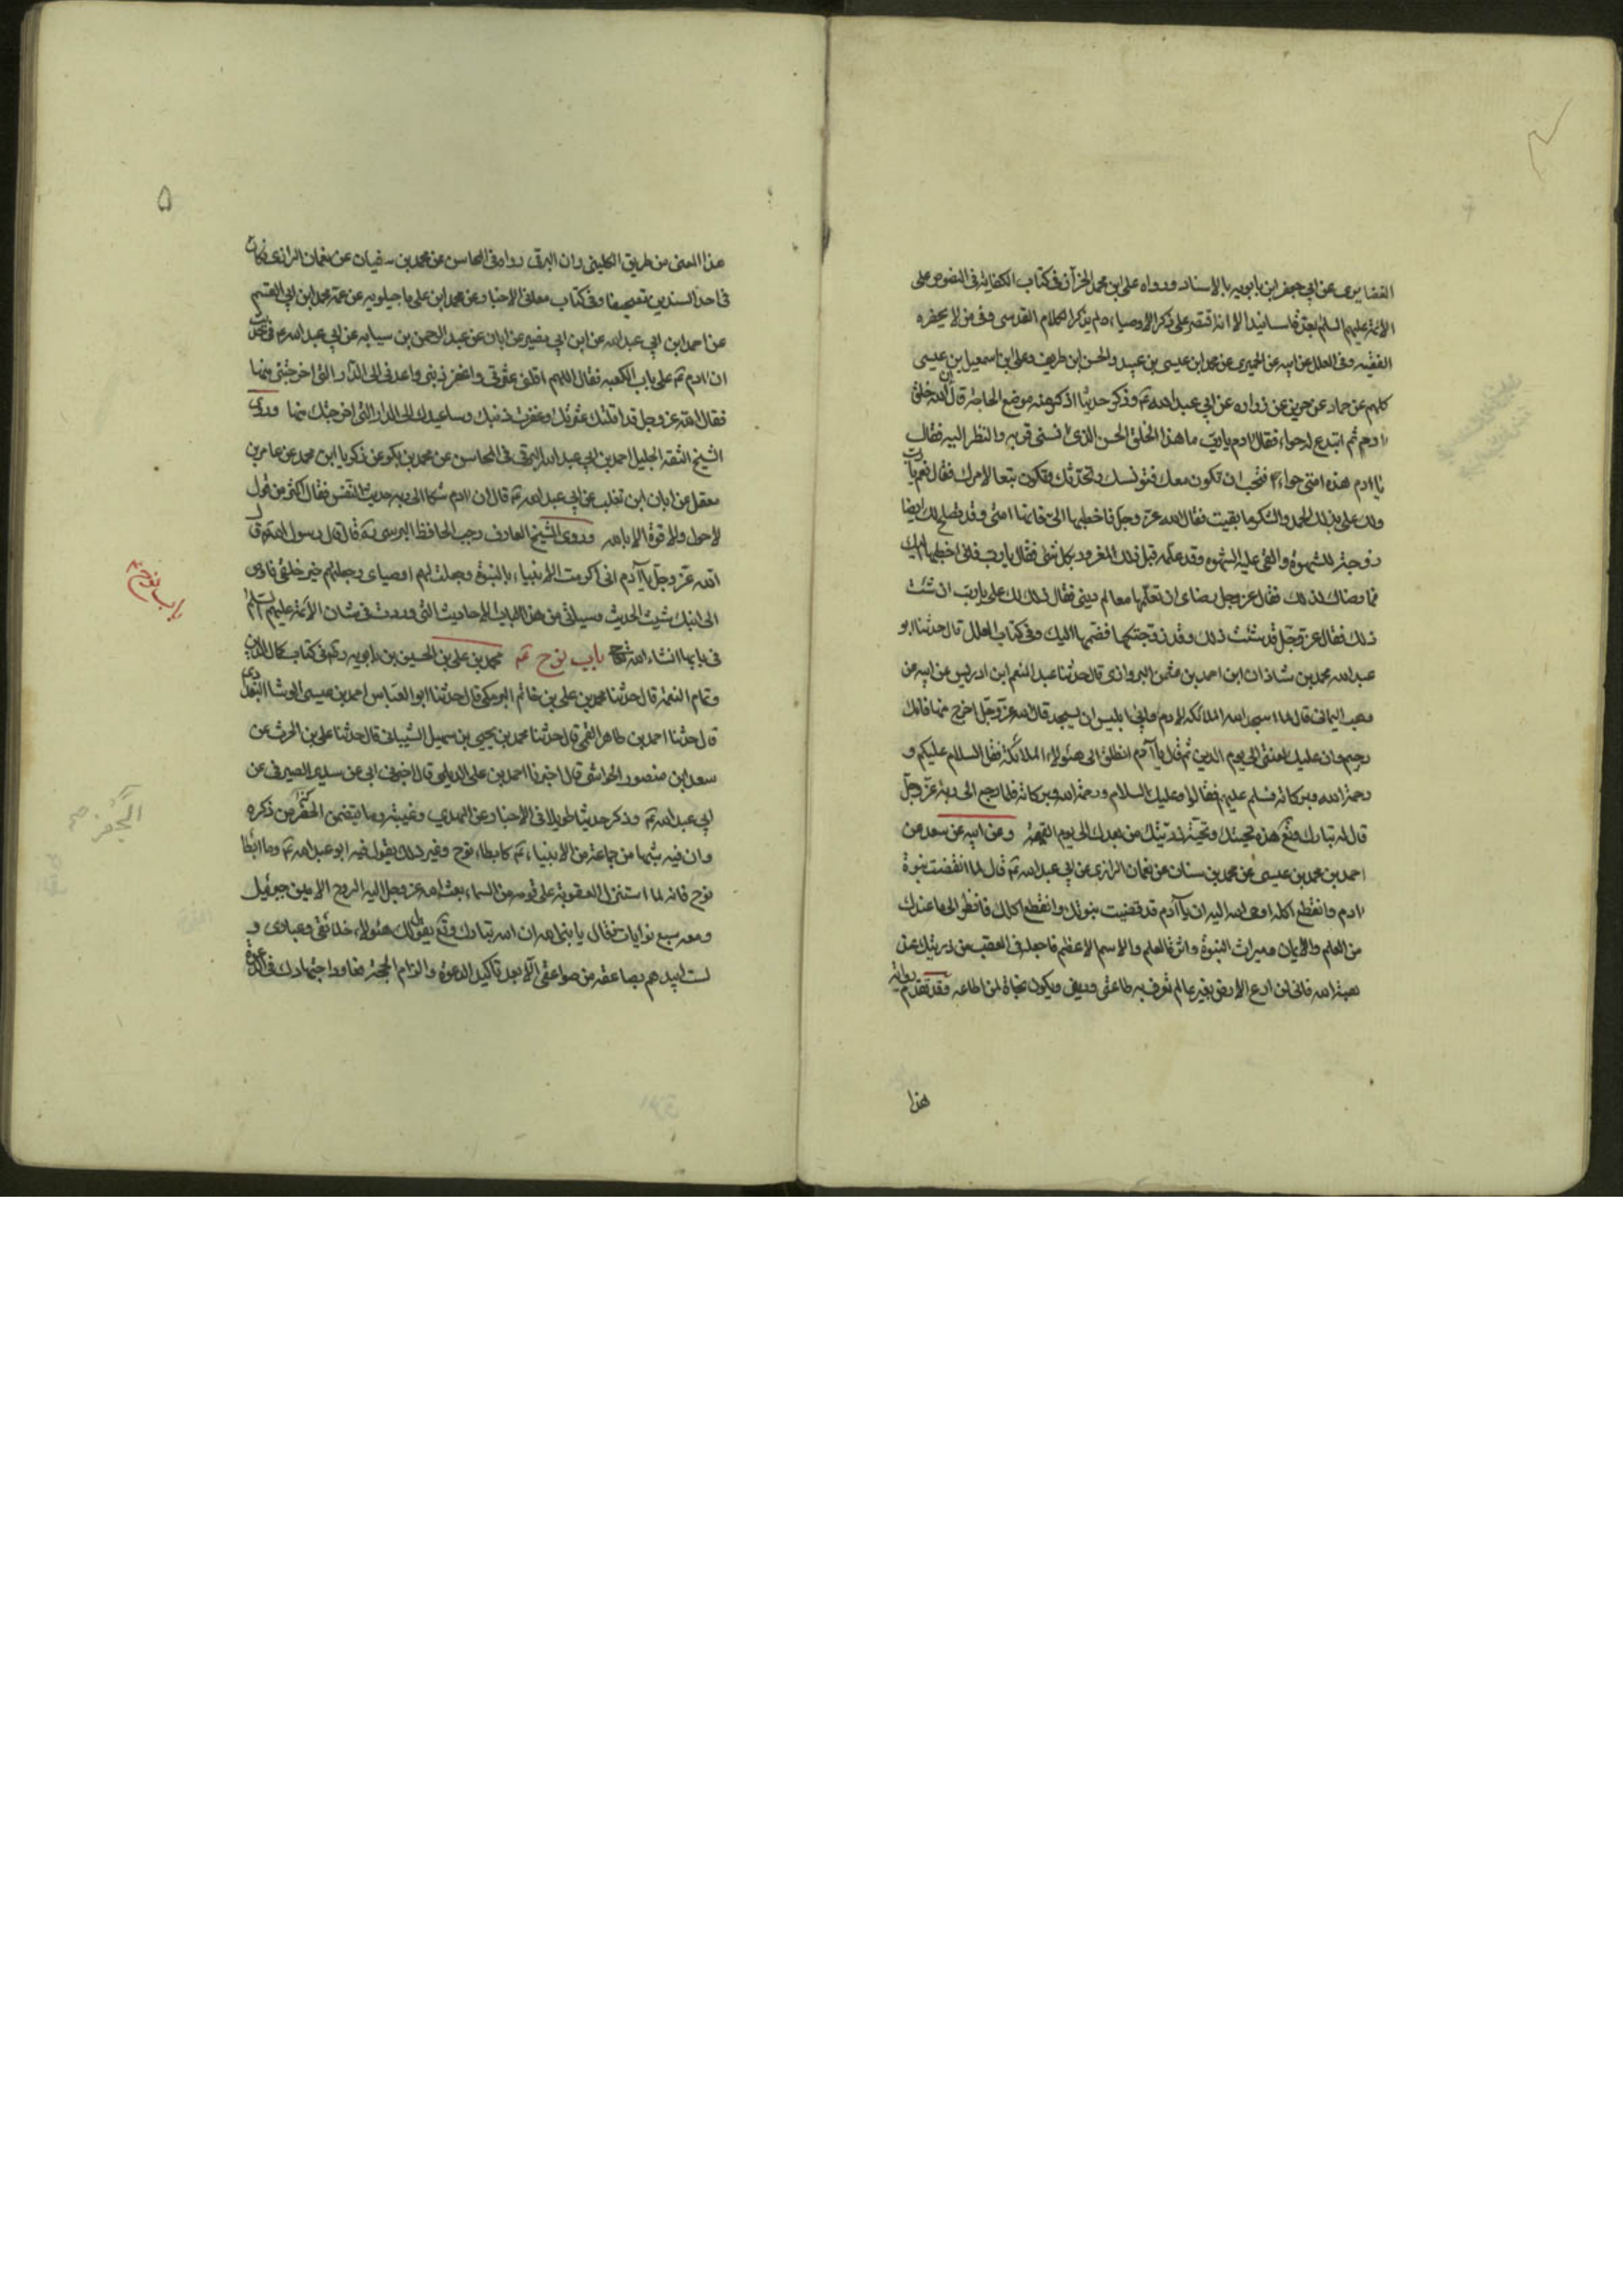 الغضايرى عن ابي جعفر ابن بابويه بالاسناد ورواه على ابن محمد الخزاز فى كتاب الكفاية فى النصوص على
الائمة عليهم السلم بعدة اسانيد الا انه اقتصر على ذكر الاوصياء ولم يذكر الكلام القدسى وفى من لا يحضره
الفقيه وفى العلل عن ابيه عن الحميرى عن محمد ابن عيسى بن عبيد والحسن ابن طريف وعلى ابن اسمعيل بن عيسى
كلهم عن حماد عن حريز عن زراره عن ابي عبد الله ع وذكر حديثا اذكر منه موضع الحاجة قال ان الله خلق
ادم ثم ابتدع له حواء فقال ادم يا رب ما هذا الخلق الحسن الذى انسنى قربه والنظر اليه فقال
يا ادم هذه امتى حواء افتحب ان تكون معك فتونسك وتحدثك وتكون تبعا لامرك فقال نعم يا رب
ولك على بذلك الحمد والشكر ما بقيت فقال الله عز وجل فاخطبها الى فانها امتى وقد تصلح لك ايضا
زوجة للشهوة والقى عليه الشهوه وقد علمه قبل ذلك المعرفة بكل شى فقال يا رب فانى اخطبها اليك
فما رضاك لذلك فقال عز وجل رضاى ان تعلمها معالم دينى فقال ذلك لك على يا رب ان شئت
ذلك فقال عز وجل قد شئت ذلك وقد زوجتكها فضمها اليك وفى كتاب العلل قال حدثنا ابو
عبد الله محمد بن شاذان ابن احمد بن عثمن البروازى قال حدثنا عبد المنعم ابن ادريس عن ابيه عن
وهب اليمانى قال لما اسجد الله الملائكة لادم وابى ابليس ان يسجد قال الله عز وجل اخرج منها فانك
رجيم وان عليك لعنتى الى يوم الدين ثم قال يا آدم انطلق الى هئولاء الملائكة فقل السلام عليكم و
رحمة الله وبركاته فسلم عليهم فقالوا وعليك السلام ورحمة الله وبركاته فلما رجع الى ربه عز وجل
قال له تبارك وتع هذه تحيتك وتحية ذريتك من بعدك الى يوم القيمة وعن ابيه عن سعد عن
احمد بن محمد بن عيسى عن محمد بن سنان عن نعمان الرازى عن ابي عبد الله ع قال لما انقضت نبوة
ادم وانقطع اكله اوحى الله اليه ان يا آدم قد قضيت نبوتك وانقطع اكلك فانظر الى ما عندك
من العلم والايمان وميراث النبوة واثرة العلم والاسم الاعظم فاجعله فى العقب من ذريتك عند
هبة الله فانى لن ادع الارض بغير عالم تعرف به طاعتى ودينى ويكون نجاة لمن اطاعه وقد تقدم رواية
هذا
۵
هذا المعنى من طريق الكلينى وان البرقى رواه فى المحاسن عن محمد بن سفيان عن نعمان الرازى وكان
فى احد السندين تصحيفا وفى كتاب معانى الاخبار عن محمد ابن على ماجيلويه عن عمه محمد ابن ابي القسم
عن احمد ابن ابي عبد الله عن ابن ابي عمير عن ابان عن عبد الرحمن بن سيابه عن ابي عبد الله ع فى حديث
ان ادم ع على باب الكعبه فقال اللهم اقلنى عثرتى واغفر ذنبى واعدنى الى الدار التى اخرجتنى منها
فقال الله عز وجل قد اقلتك عثرتك وغفرت ذنبك وساعيدك الى الدار التى اخرجتك منها وروى
الشيخ الثقة الجليل احمد بن ابي عبد الله البرقى فى المحاسن عن محمد بن بكر عن زكريا ابن محمد عن عامر بن
معقل عن ابان ابن تغلب عن ابي عبد الله ع قال ان ادم شكا الى ربه حديث النفس فقال اكثر من قول
لا حول ولا قوة الا بالله وروى الشيخ العارف رجب الحافظ البرسى ره قال قال رسول الله ص قال
الله عز وجل يا آدم انى اكرمت الانبياء بالنبوة وجعلت لهم اوصياى وجعلتهم خير خلقى فاوص
الى ابنك شيث الحديث وسياتى من هذا الباب الاحاديث التى وردت فى شان الائمة عليهم السلم
فى بابها انشاء الله تع باب نوح ع محمد بن على بن الحسين بن بابويه ره فى كتاب كمال الدين
وتمام النعمة قال حدثنا محمد بن على بن حاتم البرمكى قال حدثنا ابو العباس احمد بن عيسى الوشا البغدادى
قال حدثنا احمد بن طاهر القمى قال حدثنا محمد بن يحيى بن سهيل الشيبانى قال حدثنا على بن الحرث عن
سعد ابن منصور الجواشنى قال اخبرنا احمد بن على البديلى قال اخبرنى ابى عن سدير الصيرفى عن
ابي عبد الله ع وذكر حديثا طويلا فى الاخبار عن المهدي وغيبته وما يتضمن الجفر من ذكره
وان فيه شبها من جماعة من الانبياء ع كابطاء نوح وغير ذلك يقول فيه ابو عبد الله ع وما ابطا
نوح فانه لما استنزل العقوبة على قومه من السماء بعث الله عز وجل اليه الروح الامين جبرئيل
ومعه سبع نوايات فقال يا نبى الله ان الله تبارك وتع يقول لك هئولاء خلائقى وعبادى و
لست ابيدهم بصاعقه من صواعقى الا بعد تاكيد الدعوة والزام الحجة فعاود اجتهادك فى الدعوة
باب نوح ع